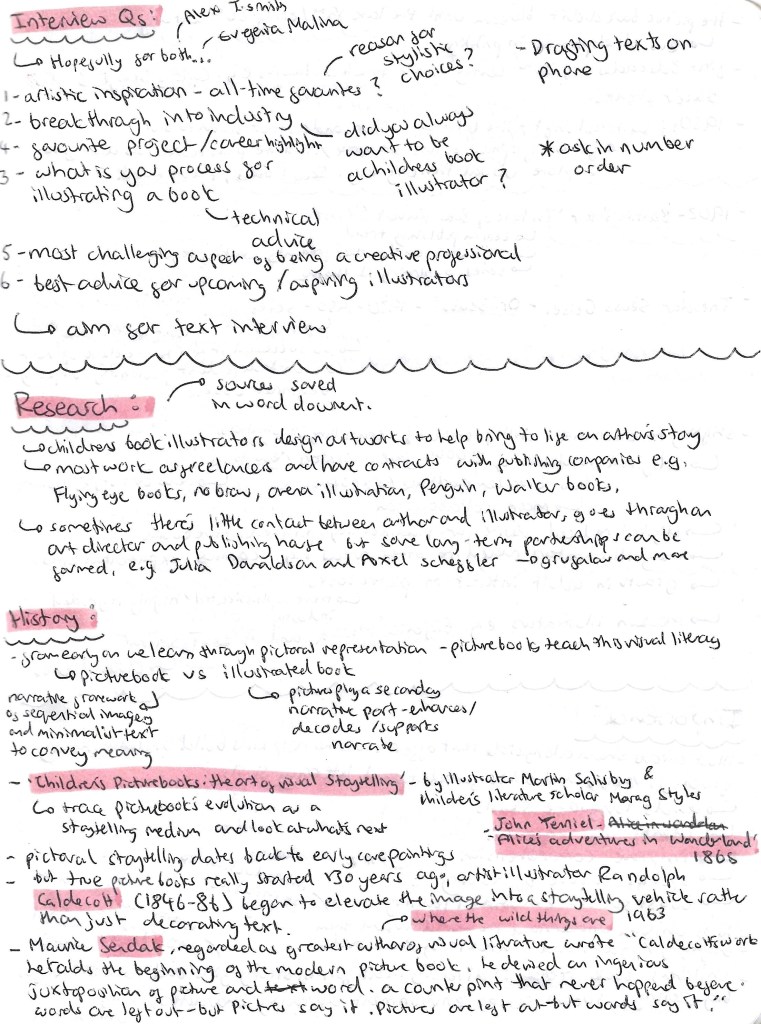 Interview Qs:
Alex T. Smith
Evgenia Malina
↳ Hopefully for both...
reason for
stylistic
choices?
- Drafting texts on
phone
1 - artistic inspiration - all-time favourites?
2 - breakthrough into industry
4 - favourite project / career highlight
did you always
want to be
a childress book
illustrator?
* ask in number
order
3 - what is you process for
illustrating a book
technical
advice
5 - most challenging aspect of being a creative professional
6 - best advice for upcoming / aspiring illustrators
↳ aim for text interview
Research:
sources saved
in word document.
↳ childrens book illustrators design artworks to help bring to life an authors story
↳ most work as freelancers and have contracts with publishing companies e.g.
Flying eye books, no brow, arena illustration, Penguin, Walker books,
↳ sometimes there's little contact between author and illustrator, goes through an
art director and publishing house but some long-term partnerships can be
formed, e.g. Julia Donaldson and Axel scheffler → gruffalo and more
History:
- from early on we learn through pictoral representation - picturebooks teach this visual literacy
↳ picturebook vs illustrated book
narrative framework
of sequential imagery
and minimalist text
to convey meaning
↳ pictures play a seconday
narrative part - enhances/
decodes / supports
narrate
- 'Children's Picturebooks: the art of visual Storytelling' - by illustrator Martin Salisbury &
children's literature scholar Morag Styles
↳ trace picturebook's evolution as a
storytelling medium and look at what's next
- John Tenniel - Alice in wonderlan
'Alice's adventures in Wonderland'
1865
- pictoral storytelling dates back to early cave paintings
- but true picture books really started 130 years ago, artist illustrator Randolph
Caldecott (1846-86) began to elevate the image into a storytelling vehicle rather
than just decorating text.
where the wild things are 1963
- Maurice Sendak, regarded as greatest author of visual literature wrote "Caldecott's work
heralds the beginning of the modern picture book. he devised an ingenious
juxtaposition of picture and text word. a counter point that never happened before.
words are left out - but Pictures say it. Pictures are left out - but words say it."